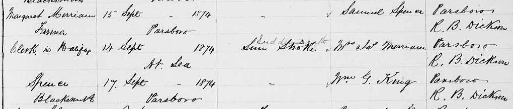 Margaret Merriam 15 Sept " 1874 " Samuel Spencer Parsboro
Farmer Parsboro R. B. Dickson
Clerk in Halifax 14 Sept 1874 Sun Stroke Parsboro
At Sea R. B. Dickson
Spencer 17 Sept 1874 Wm G. King Parsboro
Blacksmith Parsboro R. B. Dickson